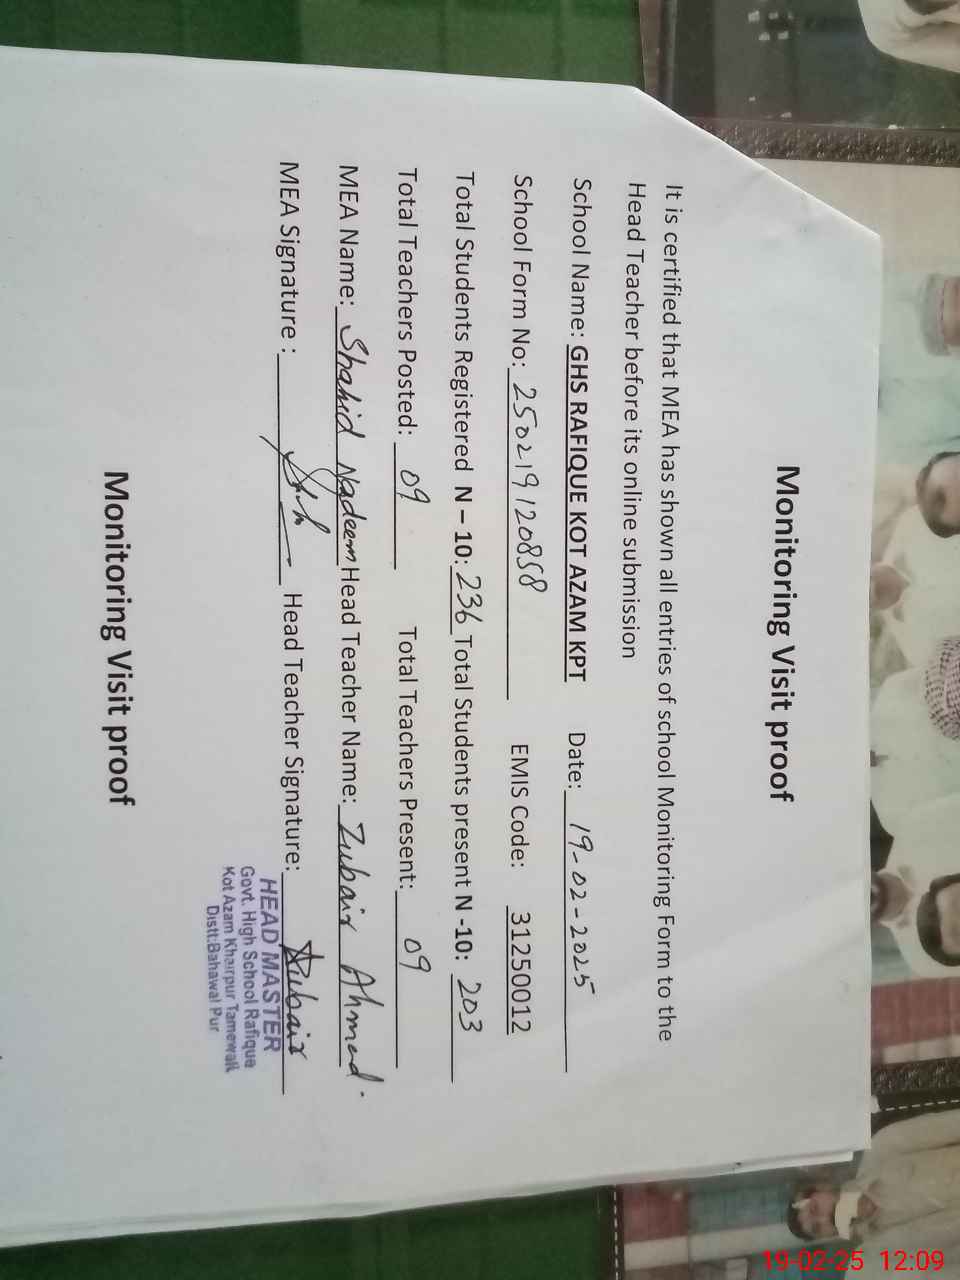 Monitoring Visit proof
It is certified that MEA has shown all entries of school Monitoring Form to the
Head Teacher before its online submission
School Name: GHS RAFIQUE KOT AZAM KPT Date: 19-02-2025
School Form No: 250219120858 EMIS Code: 31250012
Total Students Registered N – 10: 236 Total Students present N -10: 203
Total Teachers Posted: 09 Total Teachers Present: 09
MEA Name: Shahid Nadeem Head Teacher Name: Zubair Ahmad.
MEA Signature : Head Teacher Signature: Zubair
HEAD MASTER
Govt. High School Rafique
Kot Azam Khairpur Tamewali
Distt:Bahawal Pur
Monitoring Visit proof
19-02-25 12:09